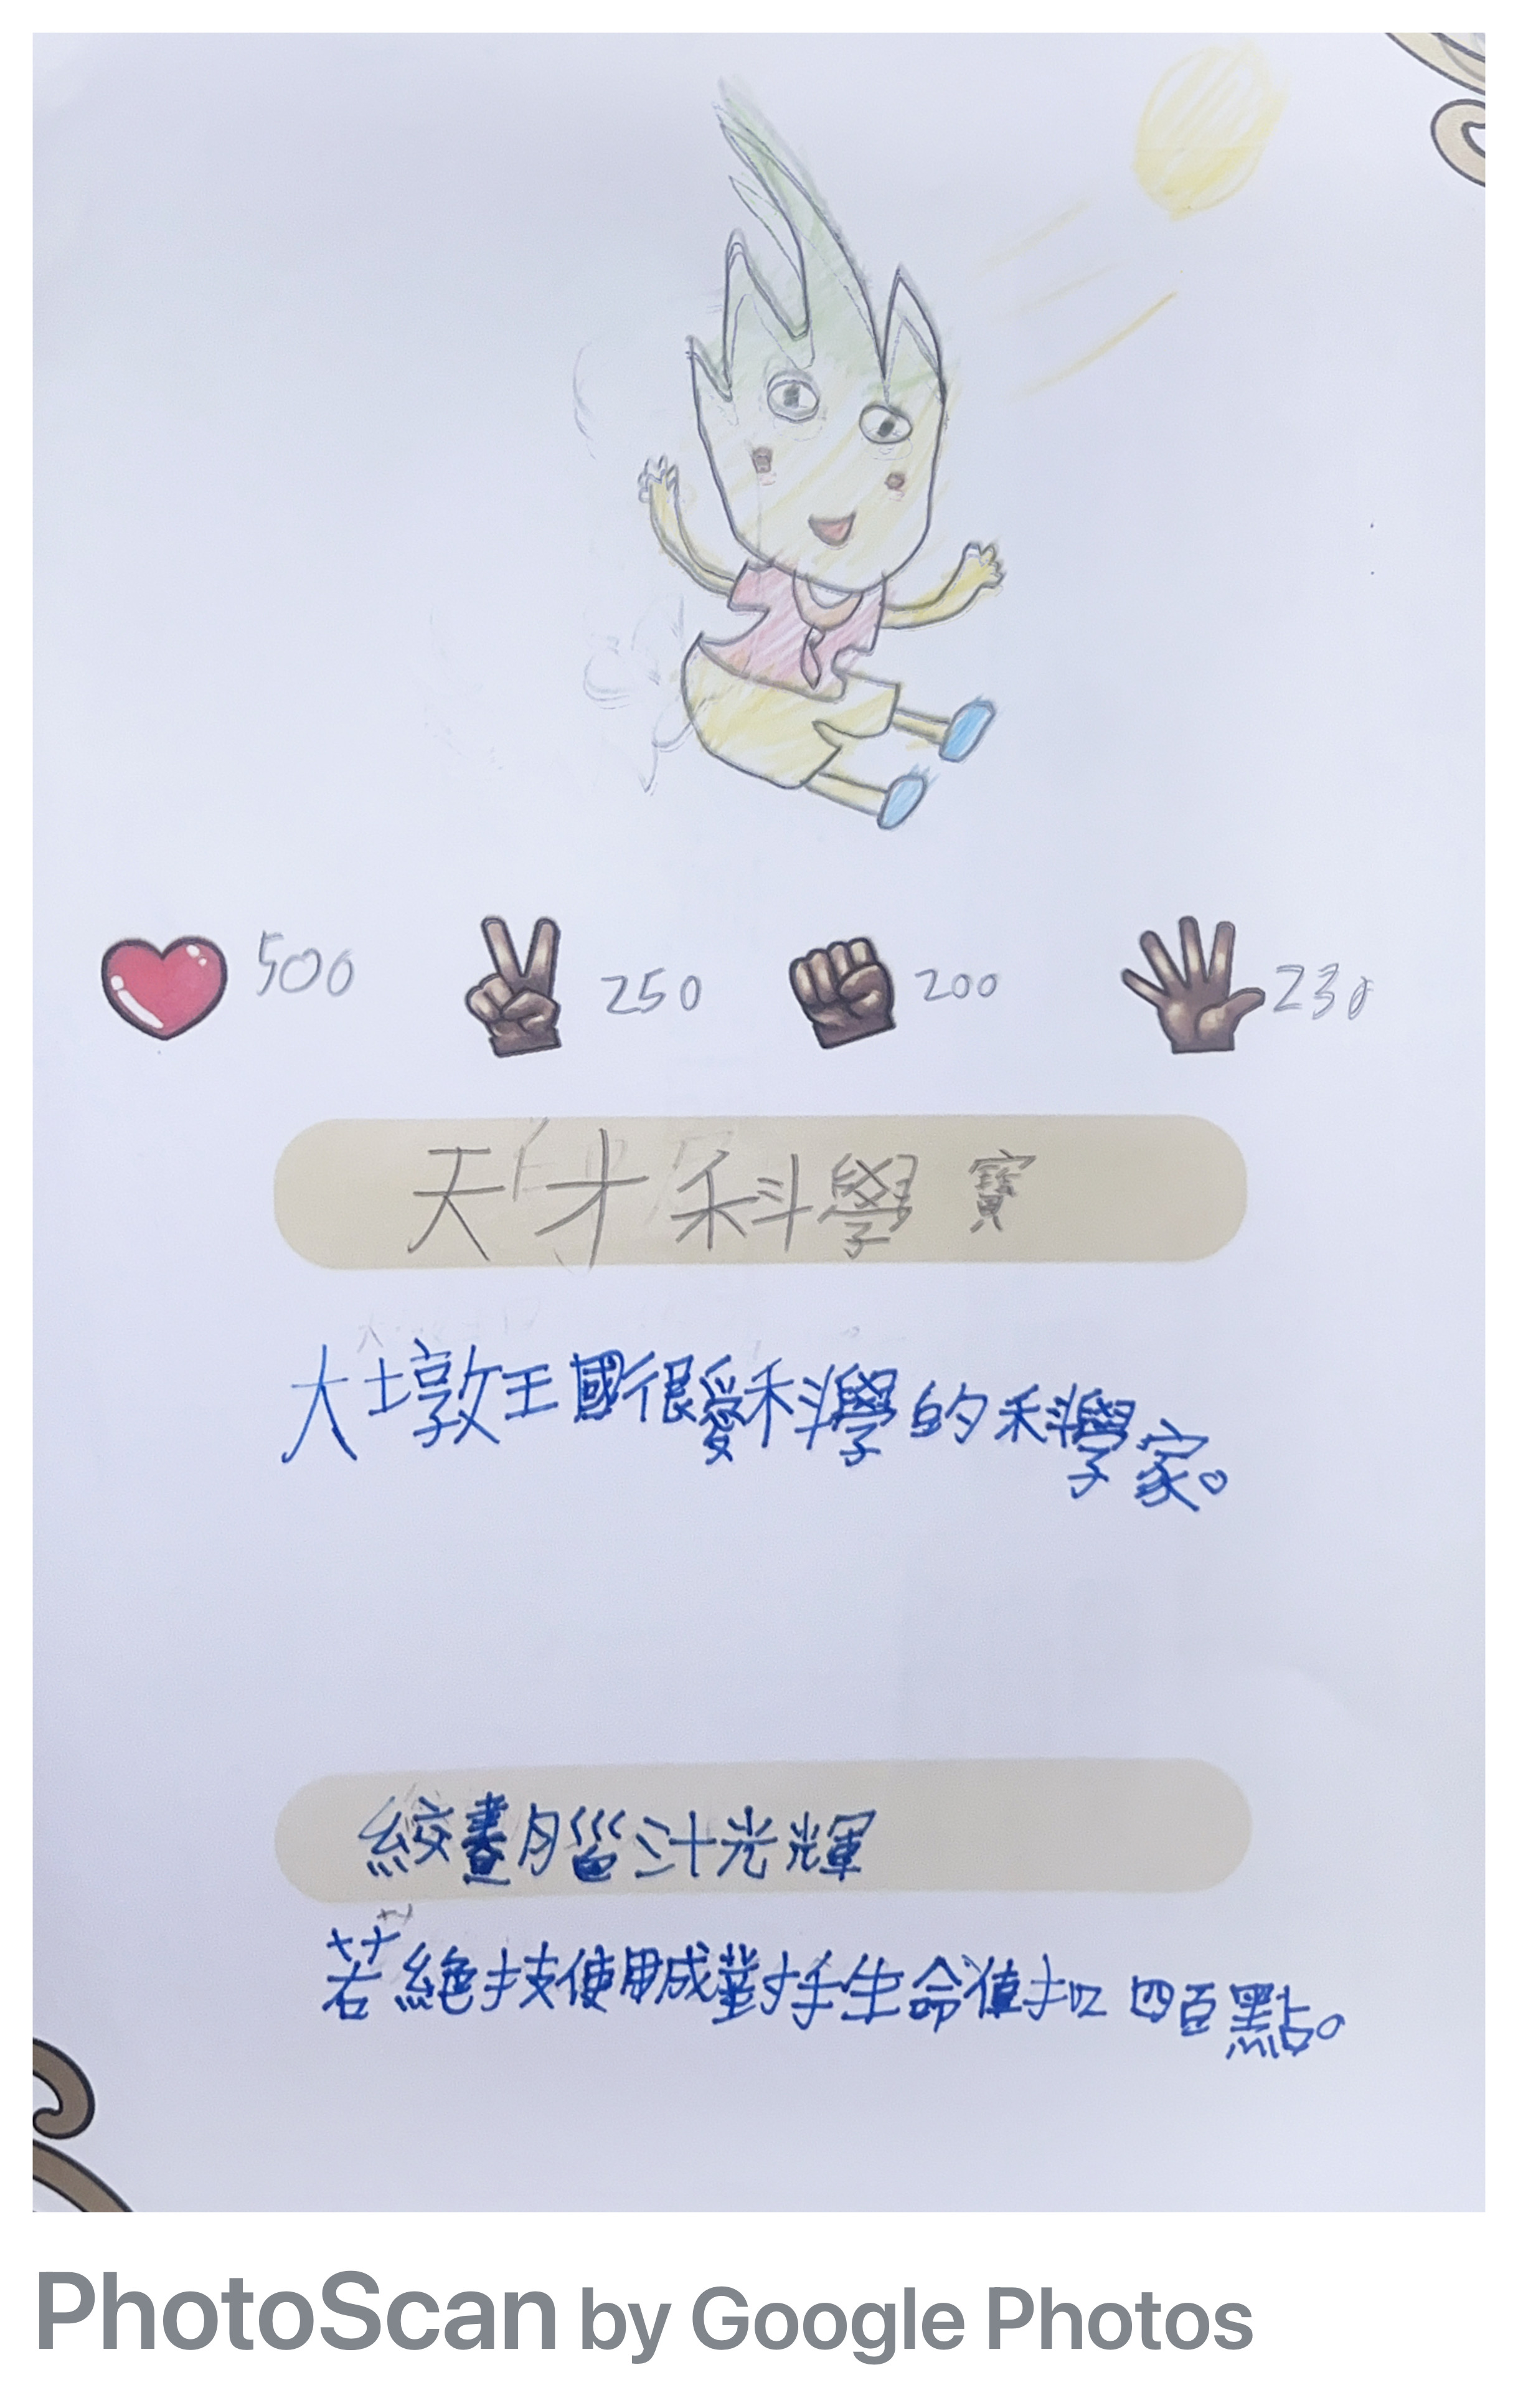 500 250 200 230
天才科學寶
大墩王國很愛科學的科學家。
絞盡腦汁光輝
若絕技使用成對手生命值扣四百點。
PhotoScan by Google Photos